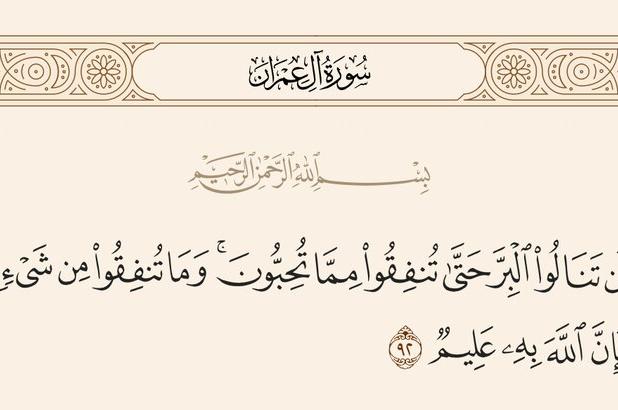 سُورَةُ آلِ عِمْرَانَ
بِسْمِ ٱللَّهِ ٱلرَّحْمَٰنِ ٱلرَّحِيمِ
تَنَالُوا۟ ٱلْبِرَّ حَتَّىٰ تُنفِقُوا۟ مِمَّا تُحِبُّونَ ۚ وَمَا تُنفِقُوا۟ مِن شَىْءٍ
إِنَّ ٱللَّهَ بِهِۦ عَلِيمٌ ٩٢